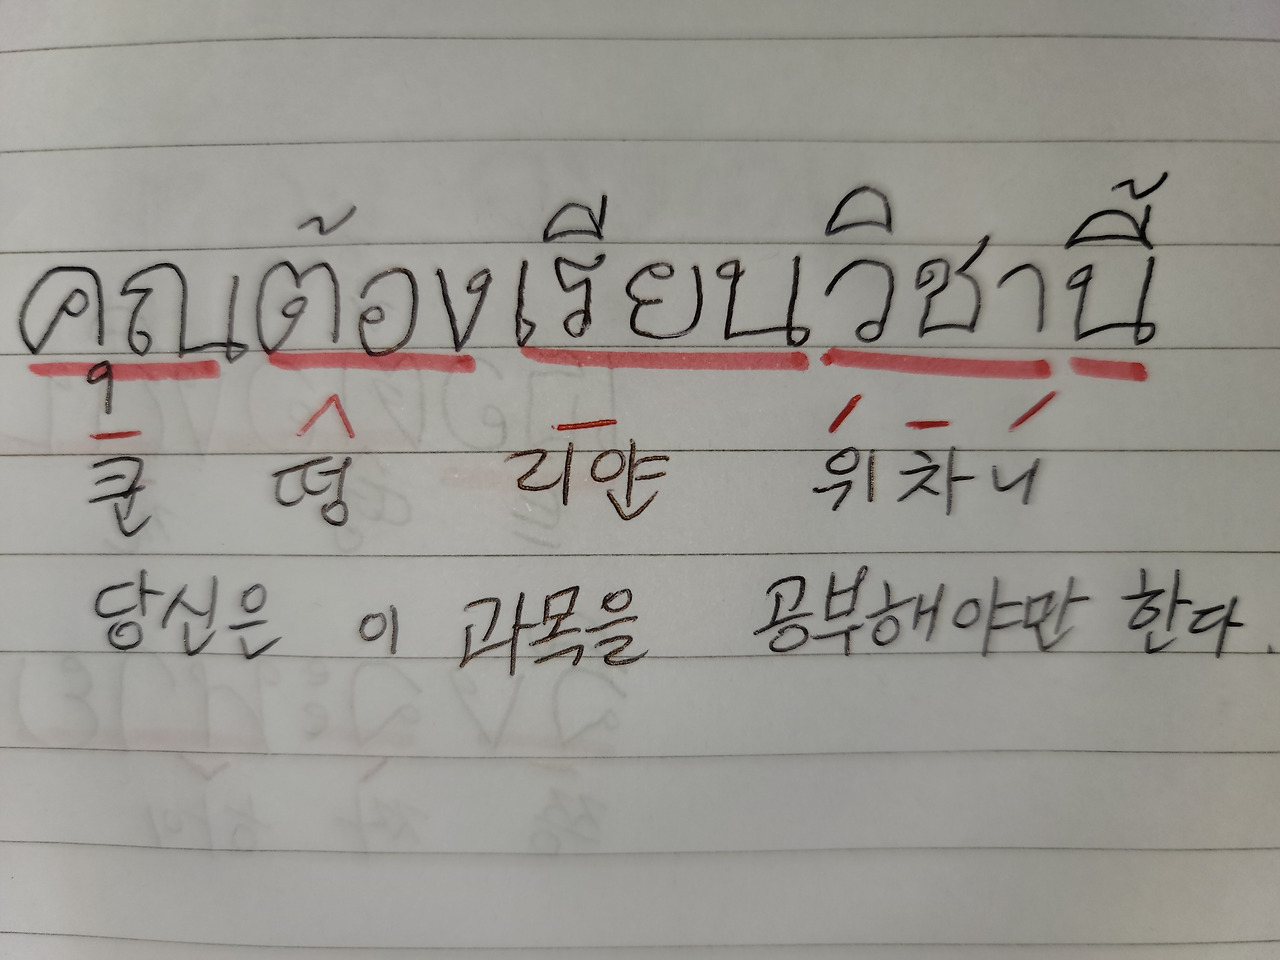 คุณต้องเรียนวิชานี้
쿤 떵 리얀 위차니
당신은 이 과목을 공부해야만 한다.